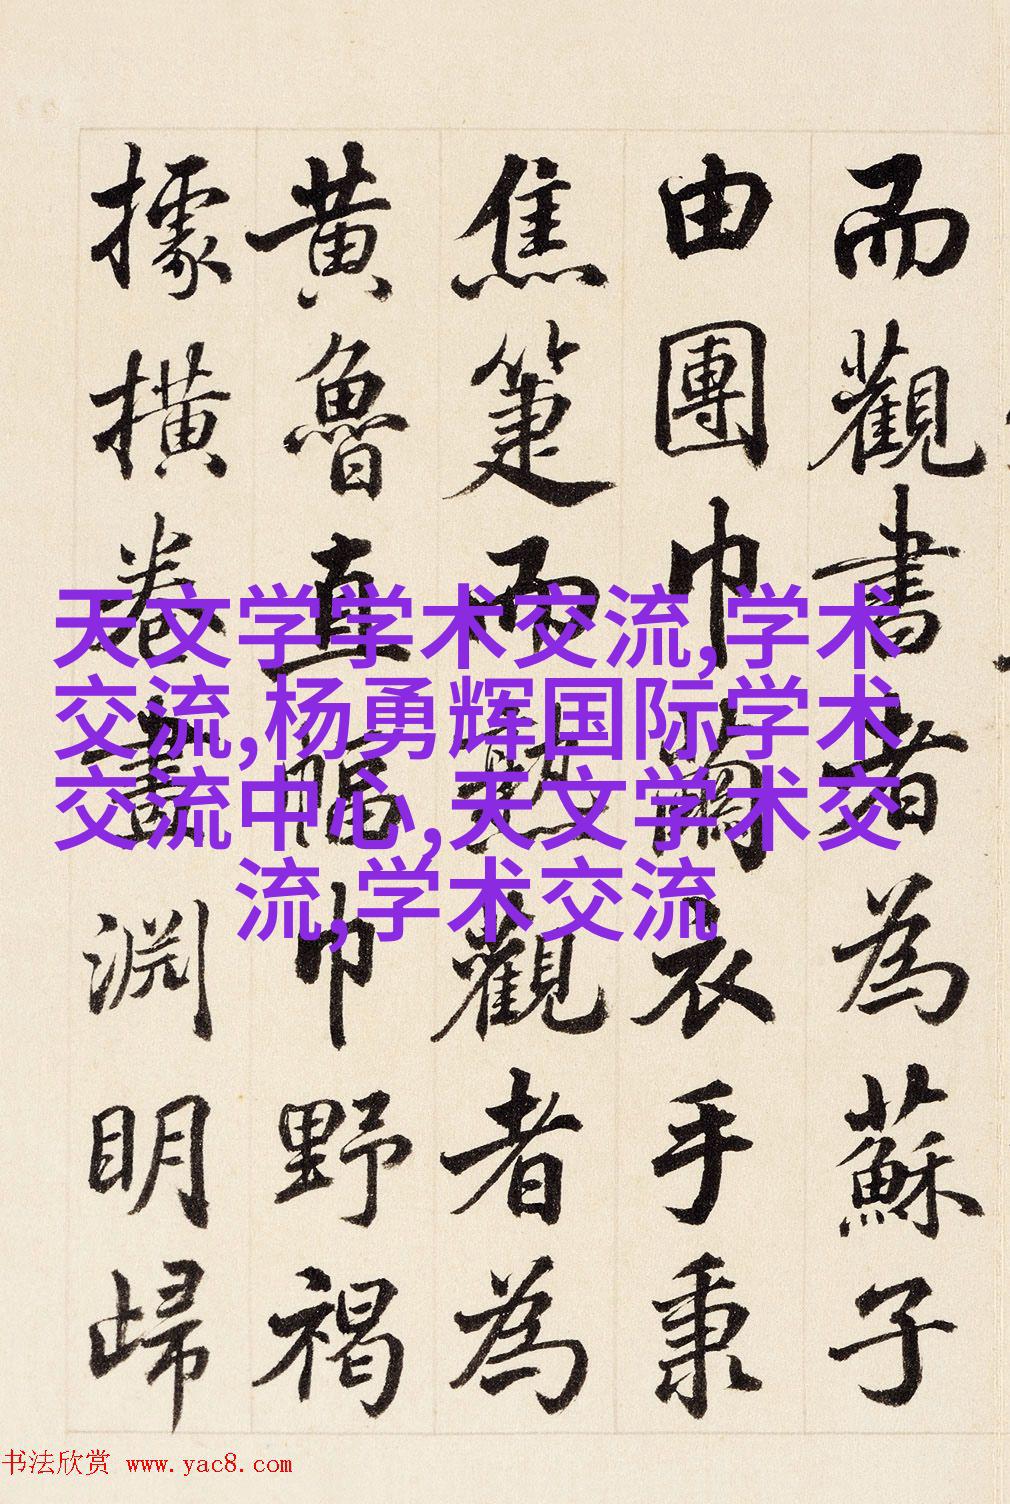 而觀書者為蘇子
由團巾繭衣手秉
焦箑而熟觀者為
黃魯直幅巾野褐
據橫卷畫淵明歸
天文学学术交流,学术
交流,杨勇辉国际学术
交流中心,天文学术交
流,学术交流
书法欣赏 www.yac8.com